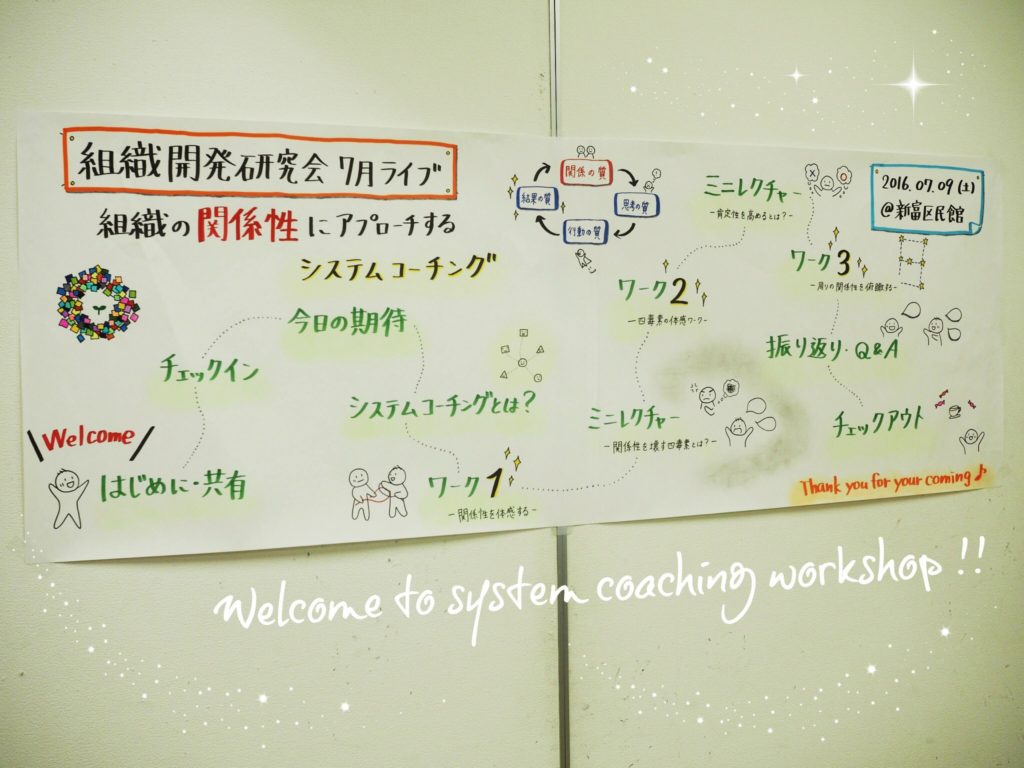 組織開発研究会 7月ライブ
組織の関係性にアプローチする
システムコーチング
\Welcome/
はじめに・共有
チェックイン
今日の期待
システムコーチングとは?
ワーク1
ー関係性を体感するー
関係の質
思考の質
行動の質
結果の質
ミニレクチャー
ー関係性を壊す四毒素とは?ー
ワーク2
ー四毒素の体感ワークー
ミニレクチャー
ー肯定性を高めるとは?ー
ワーク3
ー周りの関係性を俯瞰するー
振り返り・Q&A
チェックアウト
2016.07.09(土)
@新富区民館
Thank you for your coming♪
Welcome to system coaching workshop!!